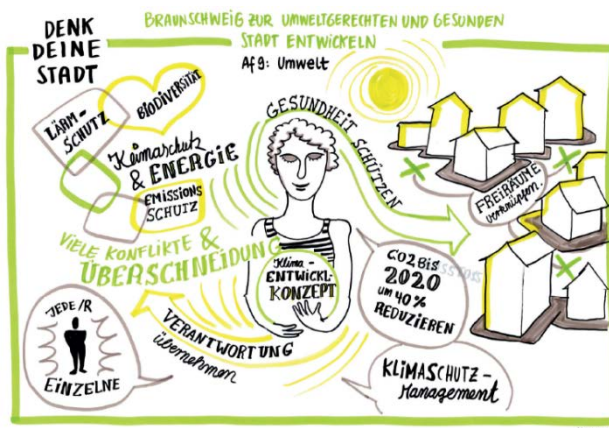 DENK
DEINE
STADT
BRAUNSCHWEIG ZUR UMWELTGERECHTEN UND GESUNDEN
STADT ENTWICKELN
Af9: Umwelt
LÄRM-
SCHUTZ
BIODIVERSITÄT
Klimaschutz
& ENERGIE
EMISSIONS
SCHUTZ
GESUNDHEIT SCHÜTZEN
FREIRÄUME
verknüpfen.
VIELE KONFLIKTE &
ÜBERSCHNEIDUNG
Klima-
ENTWICKL-
KONZEPT
CO2 BIS
2020
um 40%
REDUZIEREN
JEDE/R
EINZELNE
VERANTWORTUNG
übernehmen
KLIMASCHUTZ-
Management